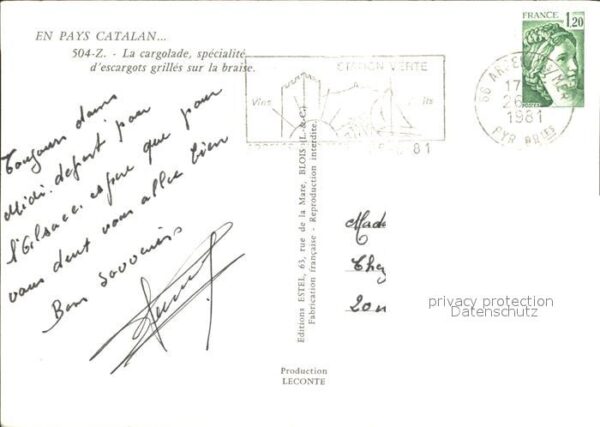 EN PAYS CATALAN...
504-Z. - La cargolade, spécialité
d'escargots grillés sur la braise.
FRANCE
1,20
POSTES
STATION VERTE
Vins
17
26
1981
PYR
81
Toujours dans
Midi. depart pour
l'Alsace. espere que pour
vous dent vous allez bien
Bons souvenirs
Editions ESTEL, 63, rue de la Mare, BLOIS (L.-&-C.)
Fabrication française - Reproduction interdite.
Made
Chez
privacy protection
Datenschutz
Production
LECONTE